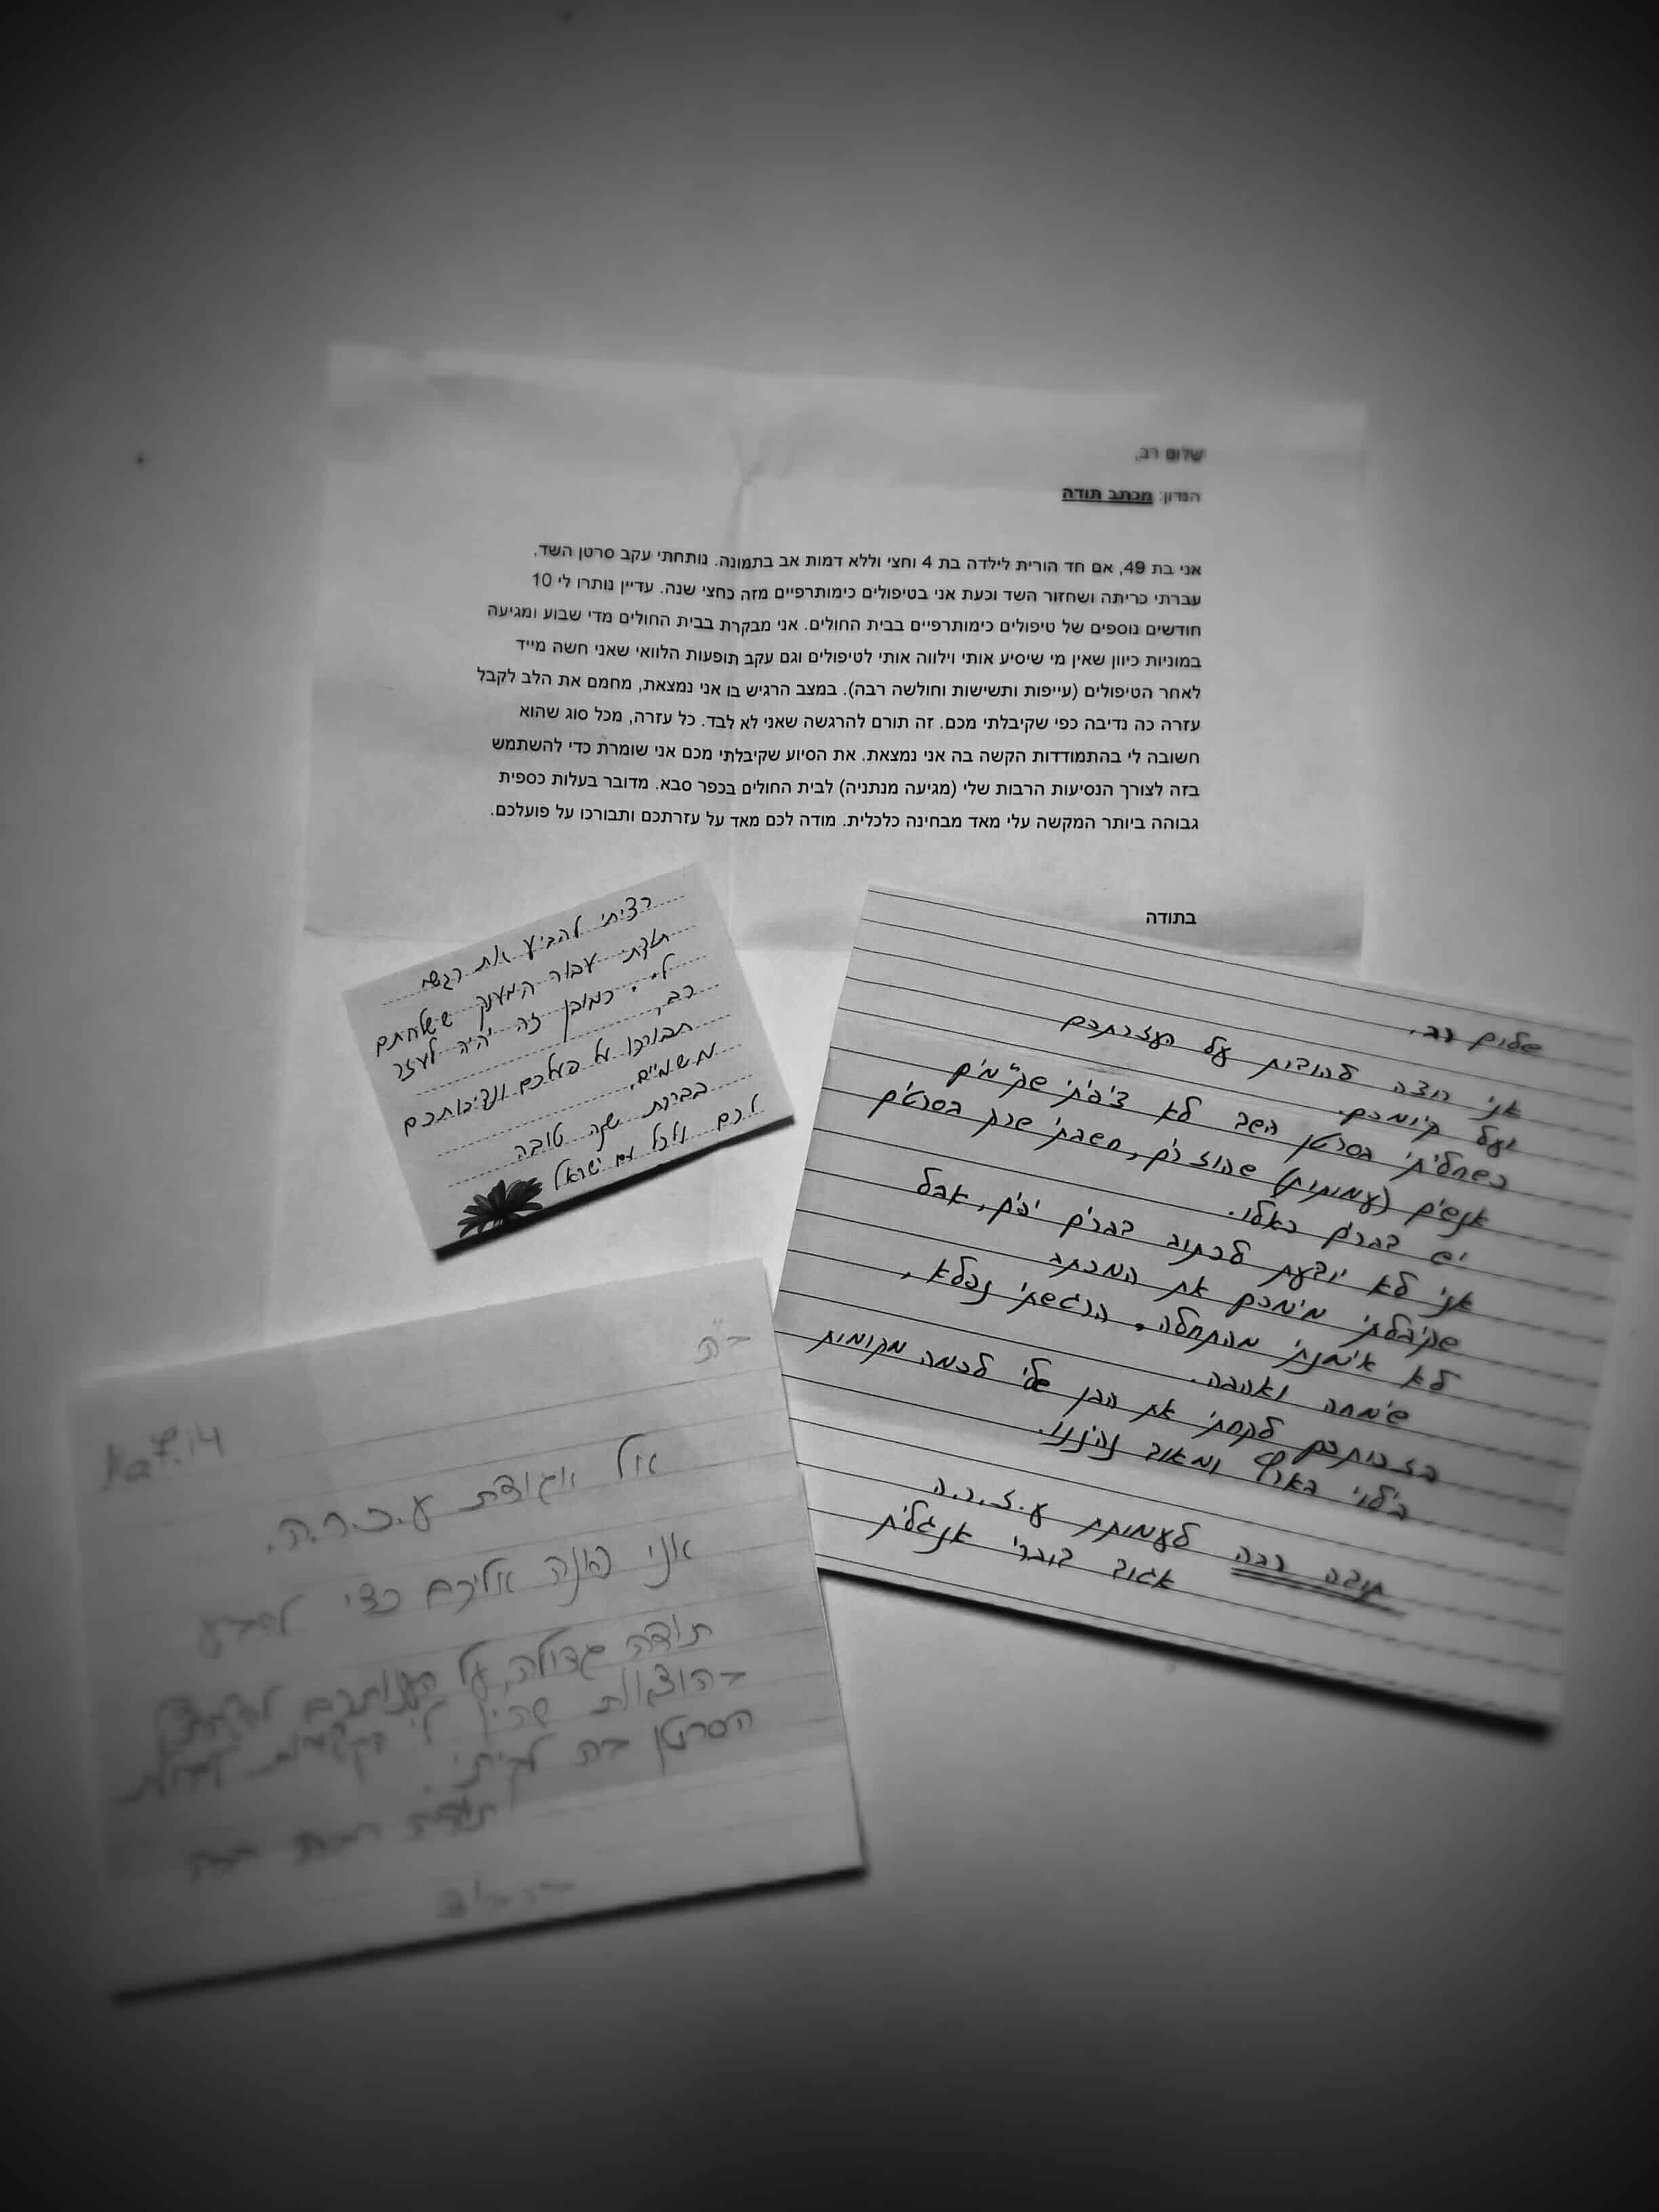 שלום רב,
הנדון: מכתב תודה
אני בת 49, אם חד הורית לילדה בת 4 וחצי וללא דמות אב בתמונה. נותחתי עקב סרטן השד,
עברתי כריתה ושחזור השד וכעת אני בטיפולים כימותרפיים מזה כחצי שנה. עדיין נותרו לי 10
חודשים נוספים של טיפולים כימותרפיים בבית החולים. אני מבקרת בבית החולים מדי שבוע ומגיעה
במוניות כיוון שאין מי שיסיע אותי וילווה אותי לטיפולים וגם עקב תופעות הלוואי שאני חשה מייד
לאחר הטיפולים (עייפות ותשישות וחולשה רבה). במצב הרגיש בו אני נמצאת, מחמם את הלב לקבל
עזרה כה נדיבה כפי שקיבלתי מכם. זה תורם להרגשה שאני לא לבד. כל עזרה, מכל סוג שהוא
חשובה לי בהתמודדות הקשה בה אני נמצאת. את הסיוע שקיבלתי מכם אני שומרת כדי להשתמש
בזה לצורך הנסיעות הרבות שלי (מגיעה מנתניה) לבית החולים בכפר סבא. מדובר בעלות כספית
גבוהה ביותר המקשה עלי מאד מבחינה כלכלית. מודה לכם מאד על עזרתכם ותבורכו על פועלכם.
בתודה
רציתי להביע את רגשי
תודתי עבור המענק ששלחתם
לי. כמובן זה יהיה לעזר
רב,
תבורכו על פועלכם ונדיבותכם
משמיים,
בברכת שנה טובה
לכם ולכל עם ישראל
שלום רב,
אני רוצה להודות על העזרתכם
ועל קיומכם.
כשחליתי בסרטן השד לא ציפיתי שקיימים
אנשים (עמותות) שעוזרים, חשבתי שרק בסרטים
יש דברים כאלו.
אני לא יודעת לכתוב דברים יפים, אבל
שקיבלתי מימכם את המכתב
לא אימנתי מהתחלה, הרגשתי נפלא,
שימחה ואהבה.
בזכותכם לקחתי את הבן שלי לכמה מקומות
בילוי בארץ ומאוד נהיננו.
תודה רבה לעמותת ע.ז.ר.ה
אגוד דוברי אנגלית
ב"ה
אל אגודת ע.ז.ר.ה.
אני פונה אליכם כדי להביע
תודה גדולה, על
בהוצאות לי
הסרטן
תודה רבה